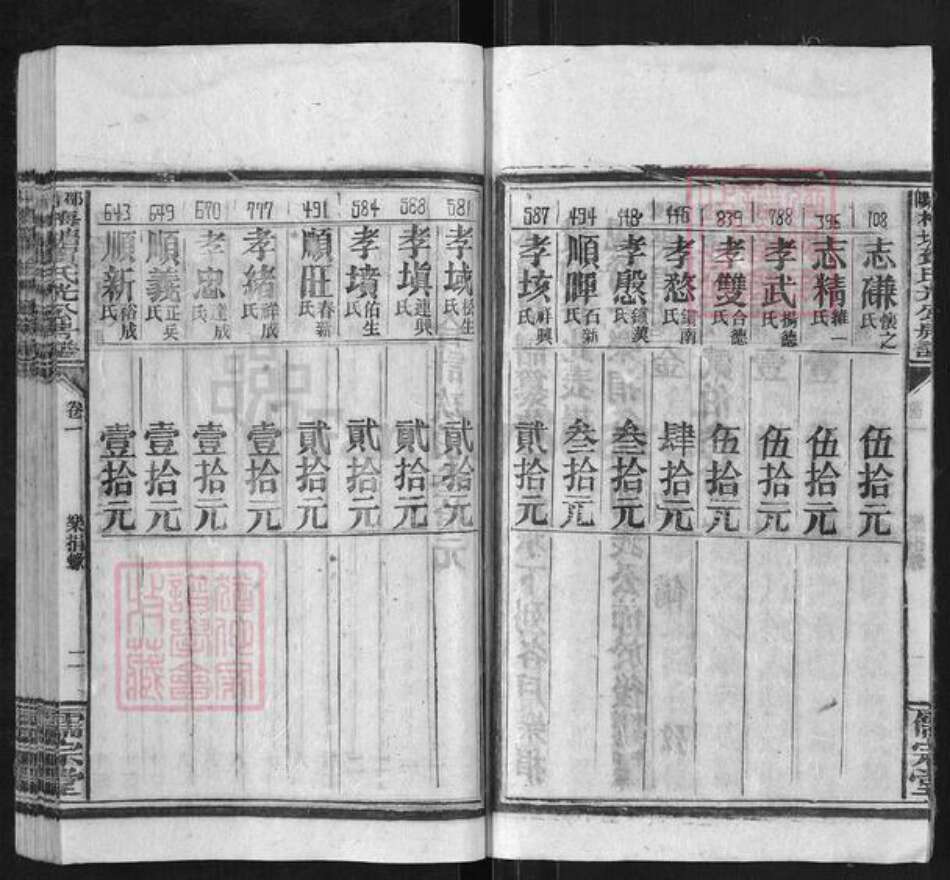 108 志磏 懷之氏 伍拾元
396 志精 維一氏 伍拾元
788 孝武 揚德氏 伍拾元
839 孝雙 合德氏 伍拾元
446 孝愁 鎮南氏 肆拾元
448 孝慇 鎮漢氏 叁拾元
494 順暉 石新氏 叁拾元
587 孝垓 祥興氏 貳拾元
儒宗堂
581 孝域 松生氏 貳拾元
588 孝塡 連興氏 貳拾元
584 孝墳 佑生氏 貳拾元
491 順旺 春新氏 貳拾元
777 孝緒 祥成氏 壹拾元
670 孝忠 達成氏 壹拾元
649 順義 正吳氏 壹拾元
643 順新 裕成氏 壹拾元
卷一
樂捐錄
二
儒宗堂